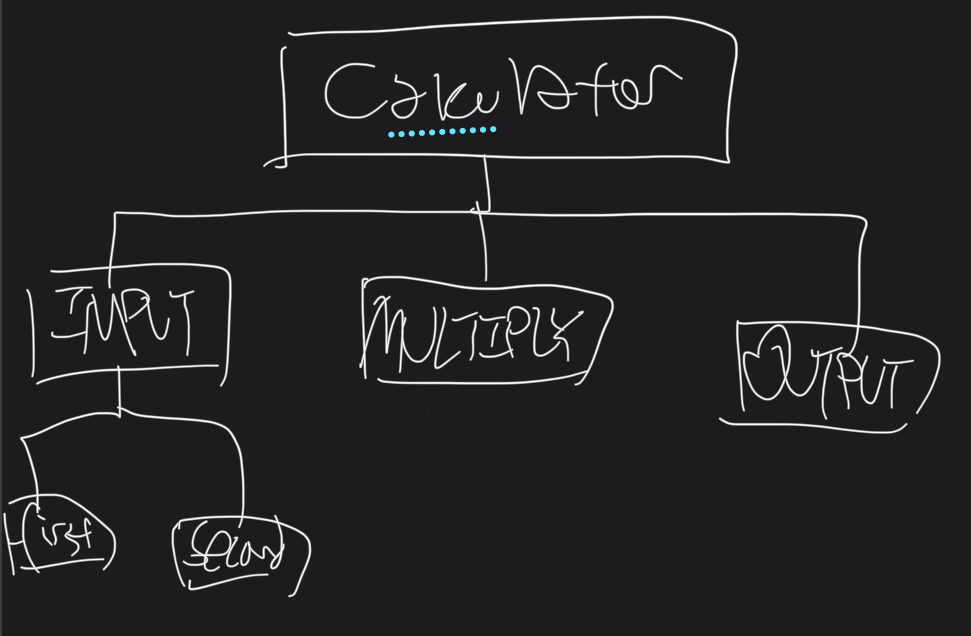 Calculator
INPUT
MULTIPLY
OUTPUT
first
Second